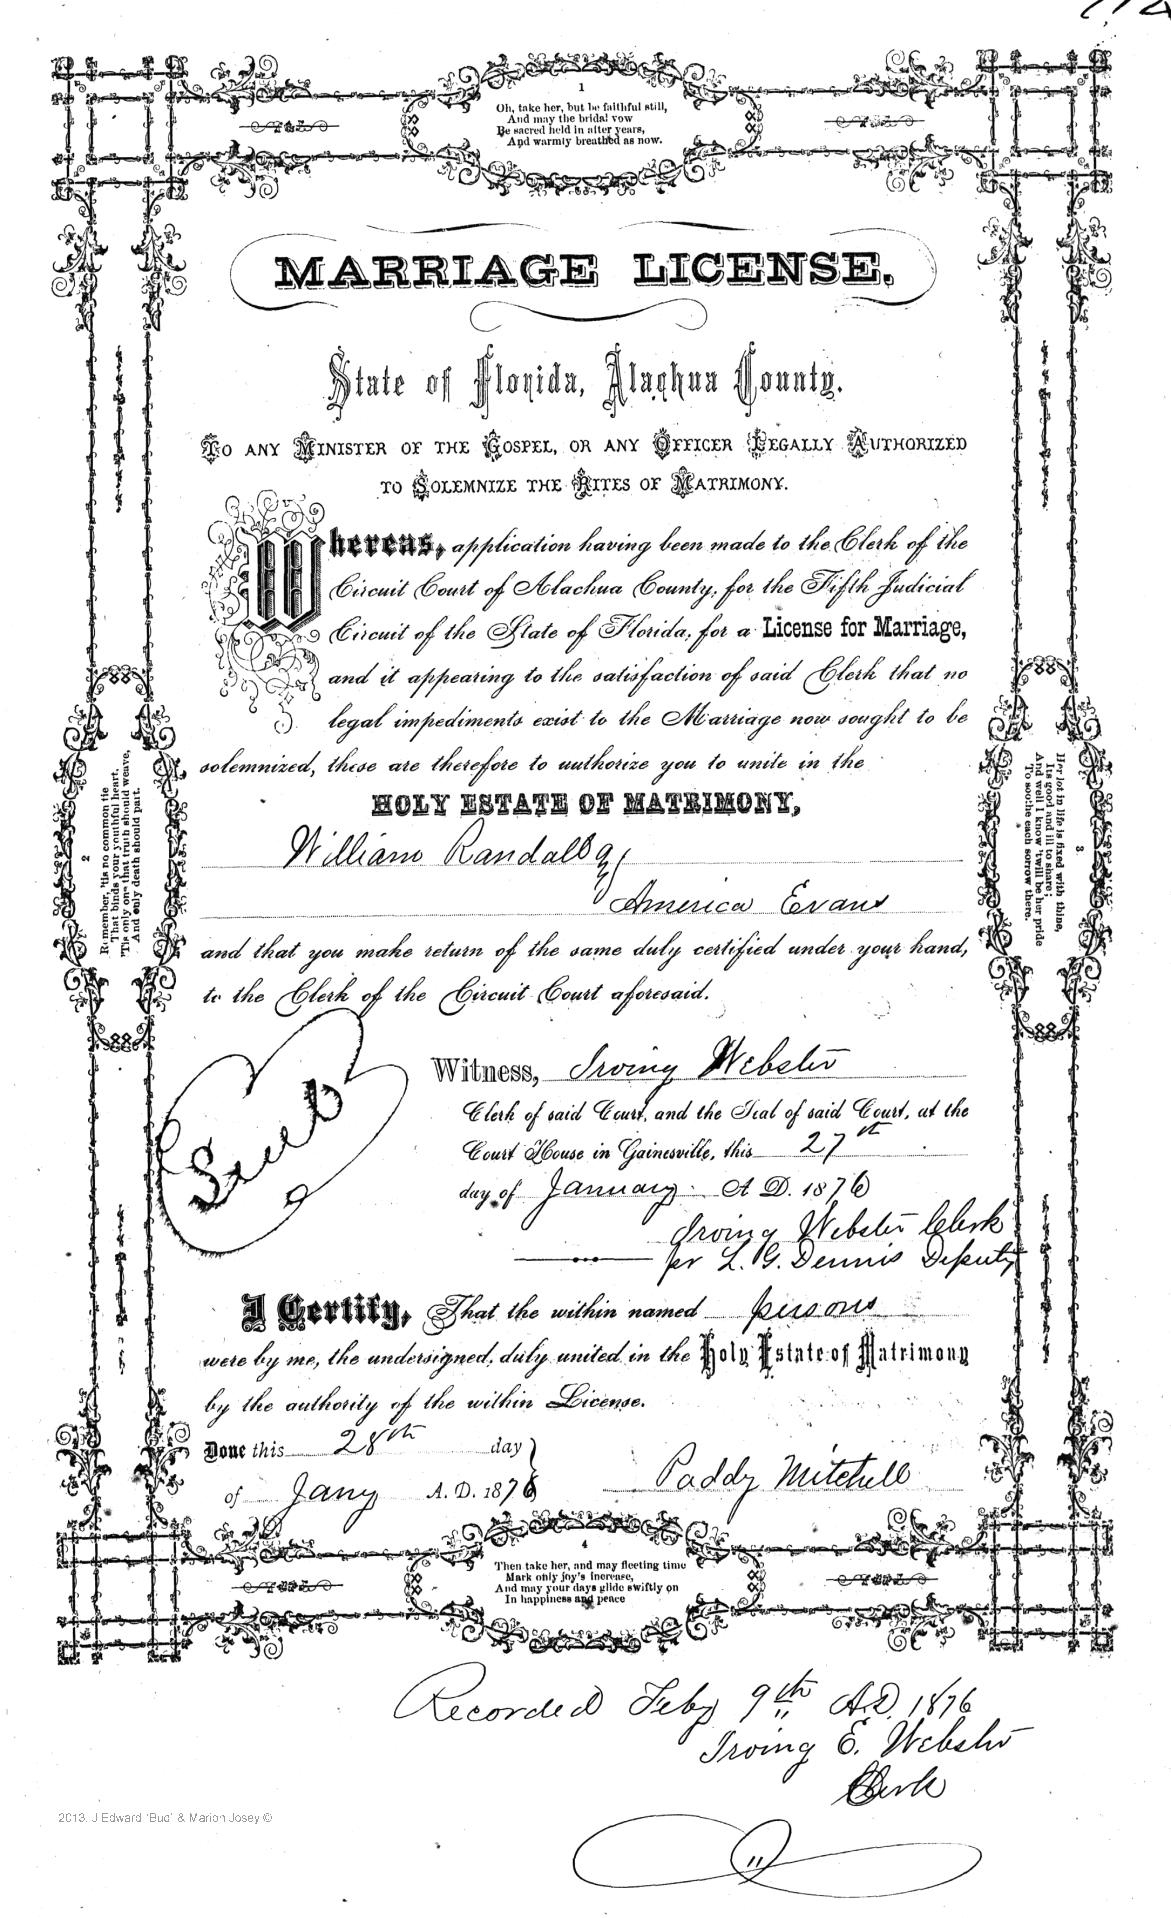 1
Oh, take her, but be faithful still,
And may the bridal vow
Be sacred held in after years,
And warmly breathed as now.
MARRIAGE LICENSE.
State of Florida, Alachua County.
TO ANY MINISTER OF THE GOSPEL, OR ANY OFFICER LEGALLY AUTHORIZED
TO SOLEMNIZE THE RITES OF MATRIMONY.
Whereas, application having been made to the Clerk of the
Circuit Court of Alachua County, for the Fifth Judicial
Circuit of the State of Florida, for a License for Marriage,
and it appearing to the satisfaction of said Clerk that no
legal impediments exist to the Marriage now sought to be
solemnized, these are therefore to authorize you to unite in the
HOLY ESTATE OF MATRIMONY,
William Randall &
America Evans
and that you make return of the same duly certified under your hand,
to the Clerk of the Circuit Court aforesaid.
2
Remember, 'tis no common tie
That binds your youthful heart,
'Tis only one that truth should weave,
And only death should part.
3
Her lot in life is fixed with thine,
Its good and ill to share;
And well I know 'twill be her pride
To soothe each sorrow there.
Seal
Witness, Irving Webster
Clerk of said Court, and the Seal of said Court, at the
Court House in Gainesville, this 27th
day of January A.D. 1876
Irving Webster Clerk
per L. G. Dennis Deputy
I Certify, That the within named persons
were by me, the undersigned, duly united in the Holy Estate of Matrimony
by the authority of the within License.
Done this 28th day
of Jany A.D. 1876
Paddy Mitchell
4
Then take her, and may fleeting time
Mark only joy's increase,
And may your days glide swiftly on
In happiness and peace
Recorded Feby 9th A.D. 1876
Irving E. Webster
Clerk
2013. J Edward 'Bud' & Marion Josey ©